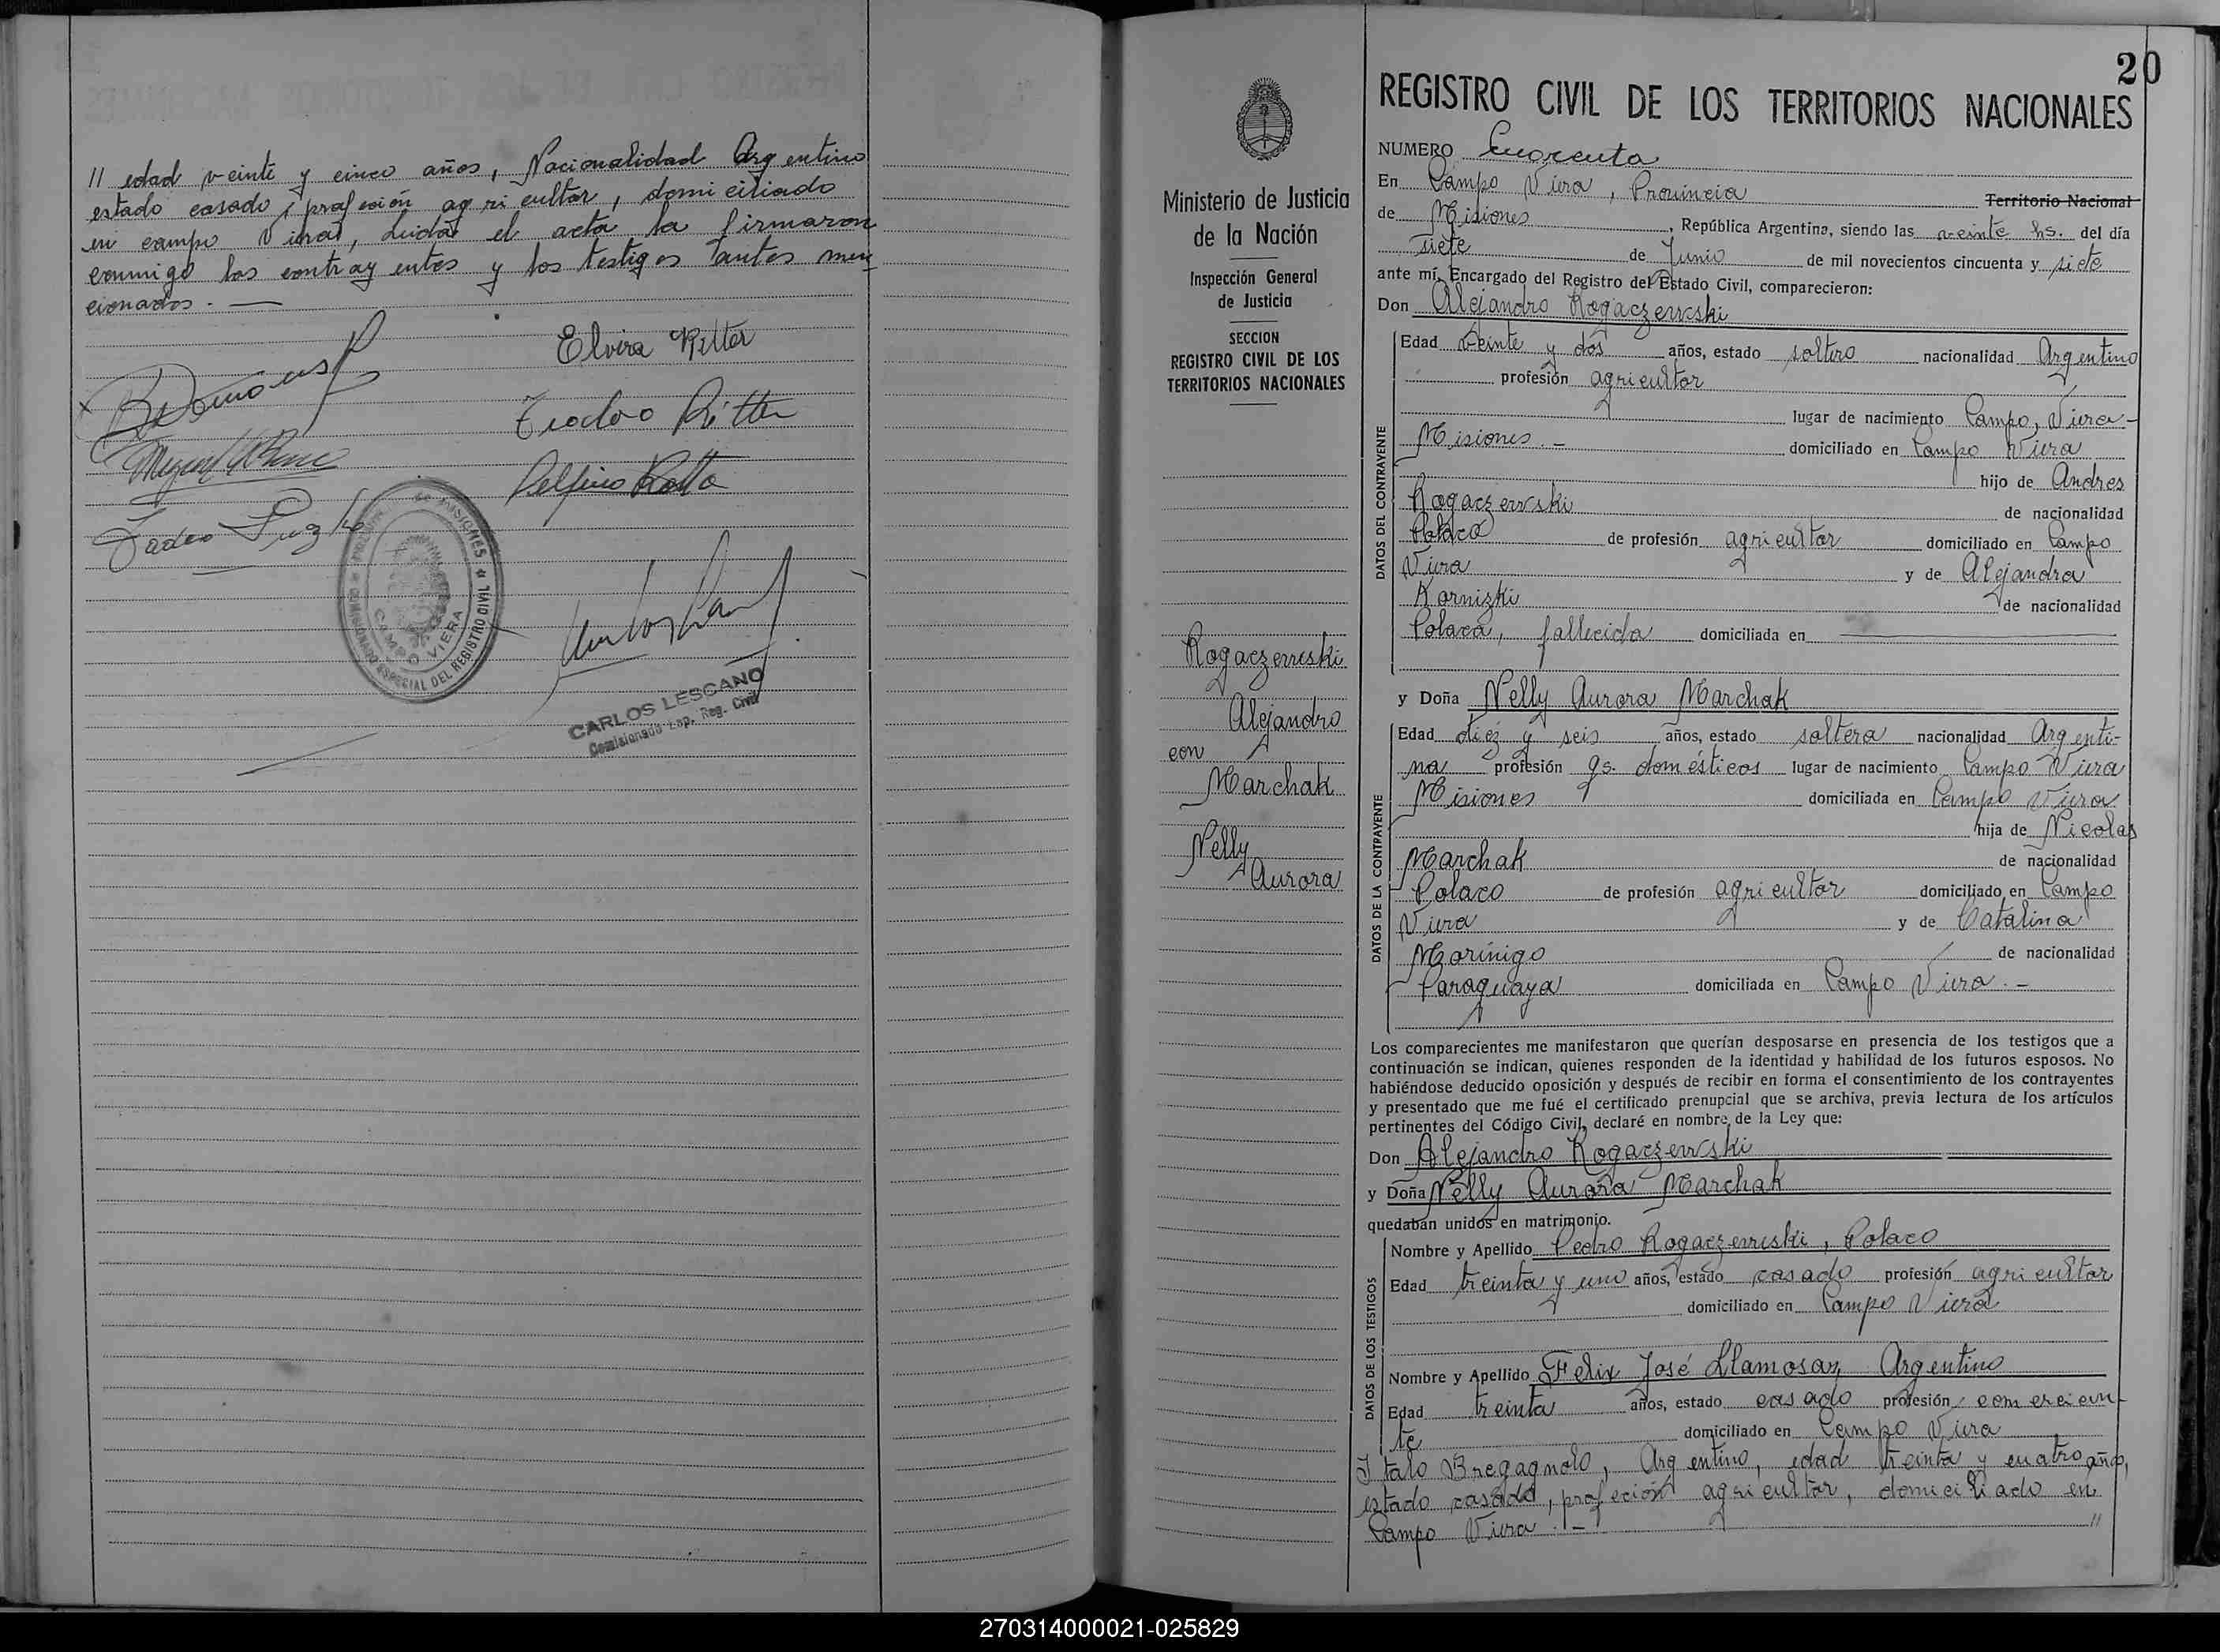 // edad veinte y cinco años, Nacionalidad Argentino
estado casado, profesión agricultor, domiciliado
en campo Viera, Leida el acta la firmaron
conmigo los contrayentes y los testigos tantes men
cionados. —
Elvira Ritter
Teodoro Ritter
Delfino
Tadeo
MISIONES
COMISIONADO ESPECIAL DEL REGISTRO CIVIL
CAMPO VIERA
CARLOS LESCANO
Comisionado Esp. Reg. Civil
Ministerio de Justicia
de la Nación
Inspección General
de Justicia
SECCION
REGISTRO CIVIL DE LOS
TERRITORIOS NACIONALES
Rogaczewski
Alejandro
con
Marchak
Nelly
Aurora
20
REGISTRO CIVIL DE LOS TERRITORIOS NACIONALES
NUMERO Cuarenta
En Campo Viera, Provincia Territorio Nacional
de Misiones, República Argentina, siendo las veinte hs. del día
siete de Junio de mil novecientos cincuenta y siete
ante mí, Encargado del Registro del Estado Civil, comparecieron:
Don Alejandro Rogaczewski
DATOS DEL CONTRAYENTE
Edad veinte y dos años, estado soltero nacionalidad Argentino
profesión agricultor
lugar de nacimiento Campo, Viera-
Misiones.- domiciliado en Campo Viera
hijo de Andres
Rogaczewski de nacionalidad
Polaco de profesión agricultor domiciliado en Campo
Viera y de Alejandra
Kornizki de nacionalidad
Polaca, fallecida domiciliada en
y Doña Nelly Aurora Marchak
DATOS DE LA CONTRAYENTE
Edad diez y seis años, estado soltera nacionalidad Argenti-
na profesión qs. domésticos lugar de nacimiento Campo Viera
Misiones domiciliada en Campo Viera
hija de Nicolas
Marchak de nacionalidad
Polaco de profesión agricultor domiciliado en Campo
Viera y de Catalina
Morínigo de nacionalidad
Paraguaya domiciliada en Campo Viera.-
Los comparecientes me manifestaron que querían desposarse en presencia de los testigos que a
continuación se indican, quienes responden de la identidad y habilidad de los futuros esposos. No
habiéndose deducido oposición y después de recibir en forma el consentimiento de los contrayentes
y presentado que me fué el certificado prenupcial que se archiva, previa lectura de los artículos
pertinentes del Código Civil, declaré en nombre de la Ley que:
Don Alejandro Rogaczewski
y Doña Nelly Aurora Marchak
quedaban unidos en matrimonio.
DATOS DE LOS TESTIGOS
Nombre y Apellido Pedro Rogaczewski, Polaco
Edad treinta y uno años, estado casado profesión agricultor
domiciliado en Campo Viera
Nombre y Apellido Felix José Llamosas, Argentino
Edad treinta años, estado casado profesión comercian-
te domiciliado en Campo Viera
Italo Bregagnolo, Argentino, edad treinta y cuatro años,
estado casado, profeción agricultor, domiciliado en
Campo Viera.- //
270314000021-025829